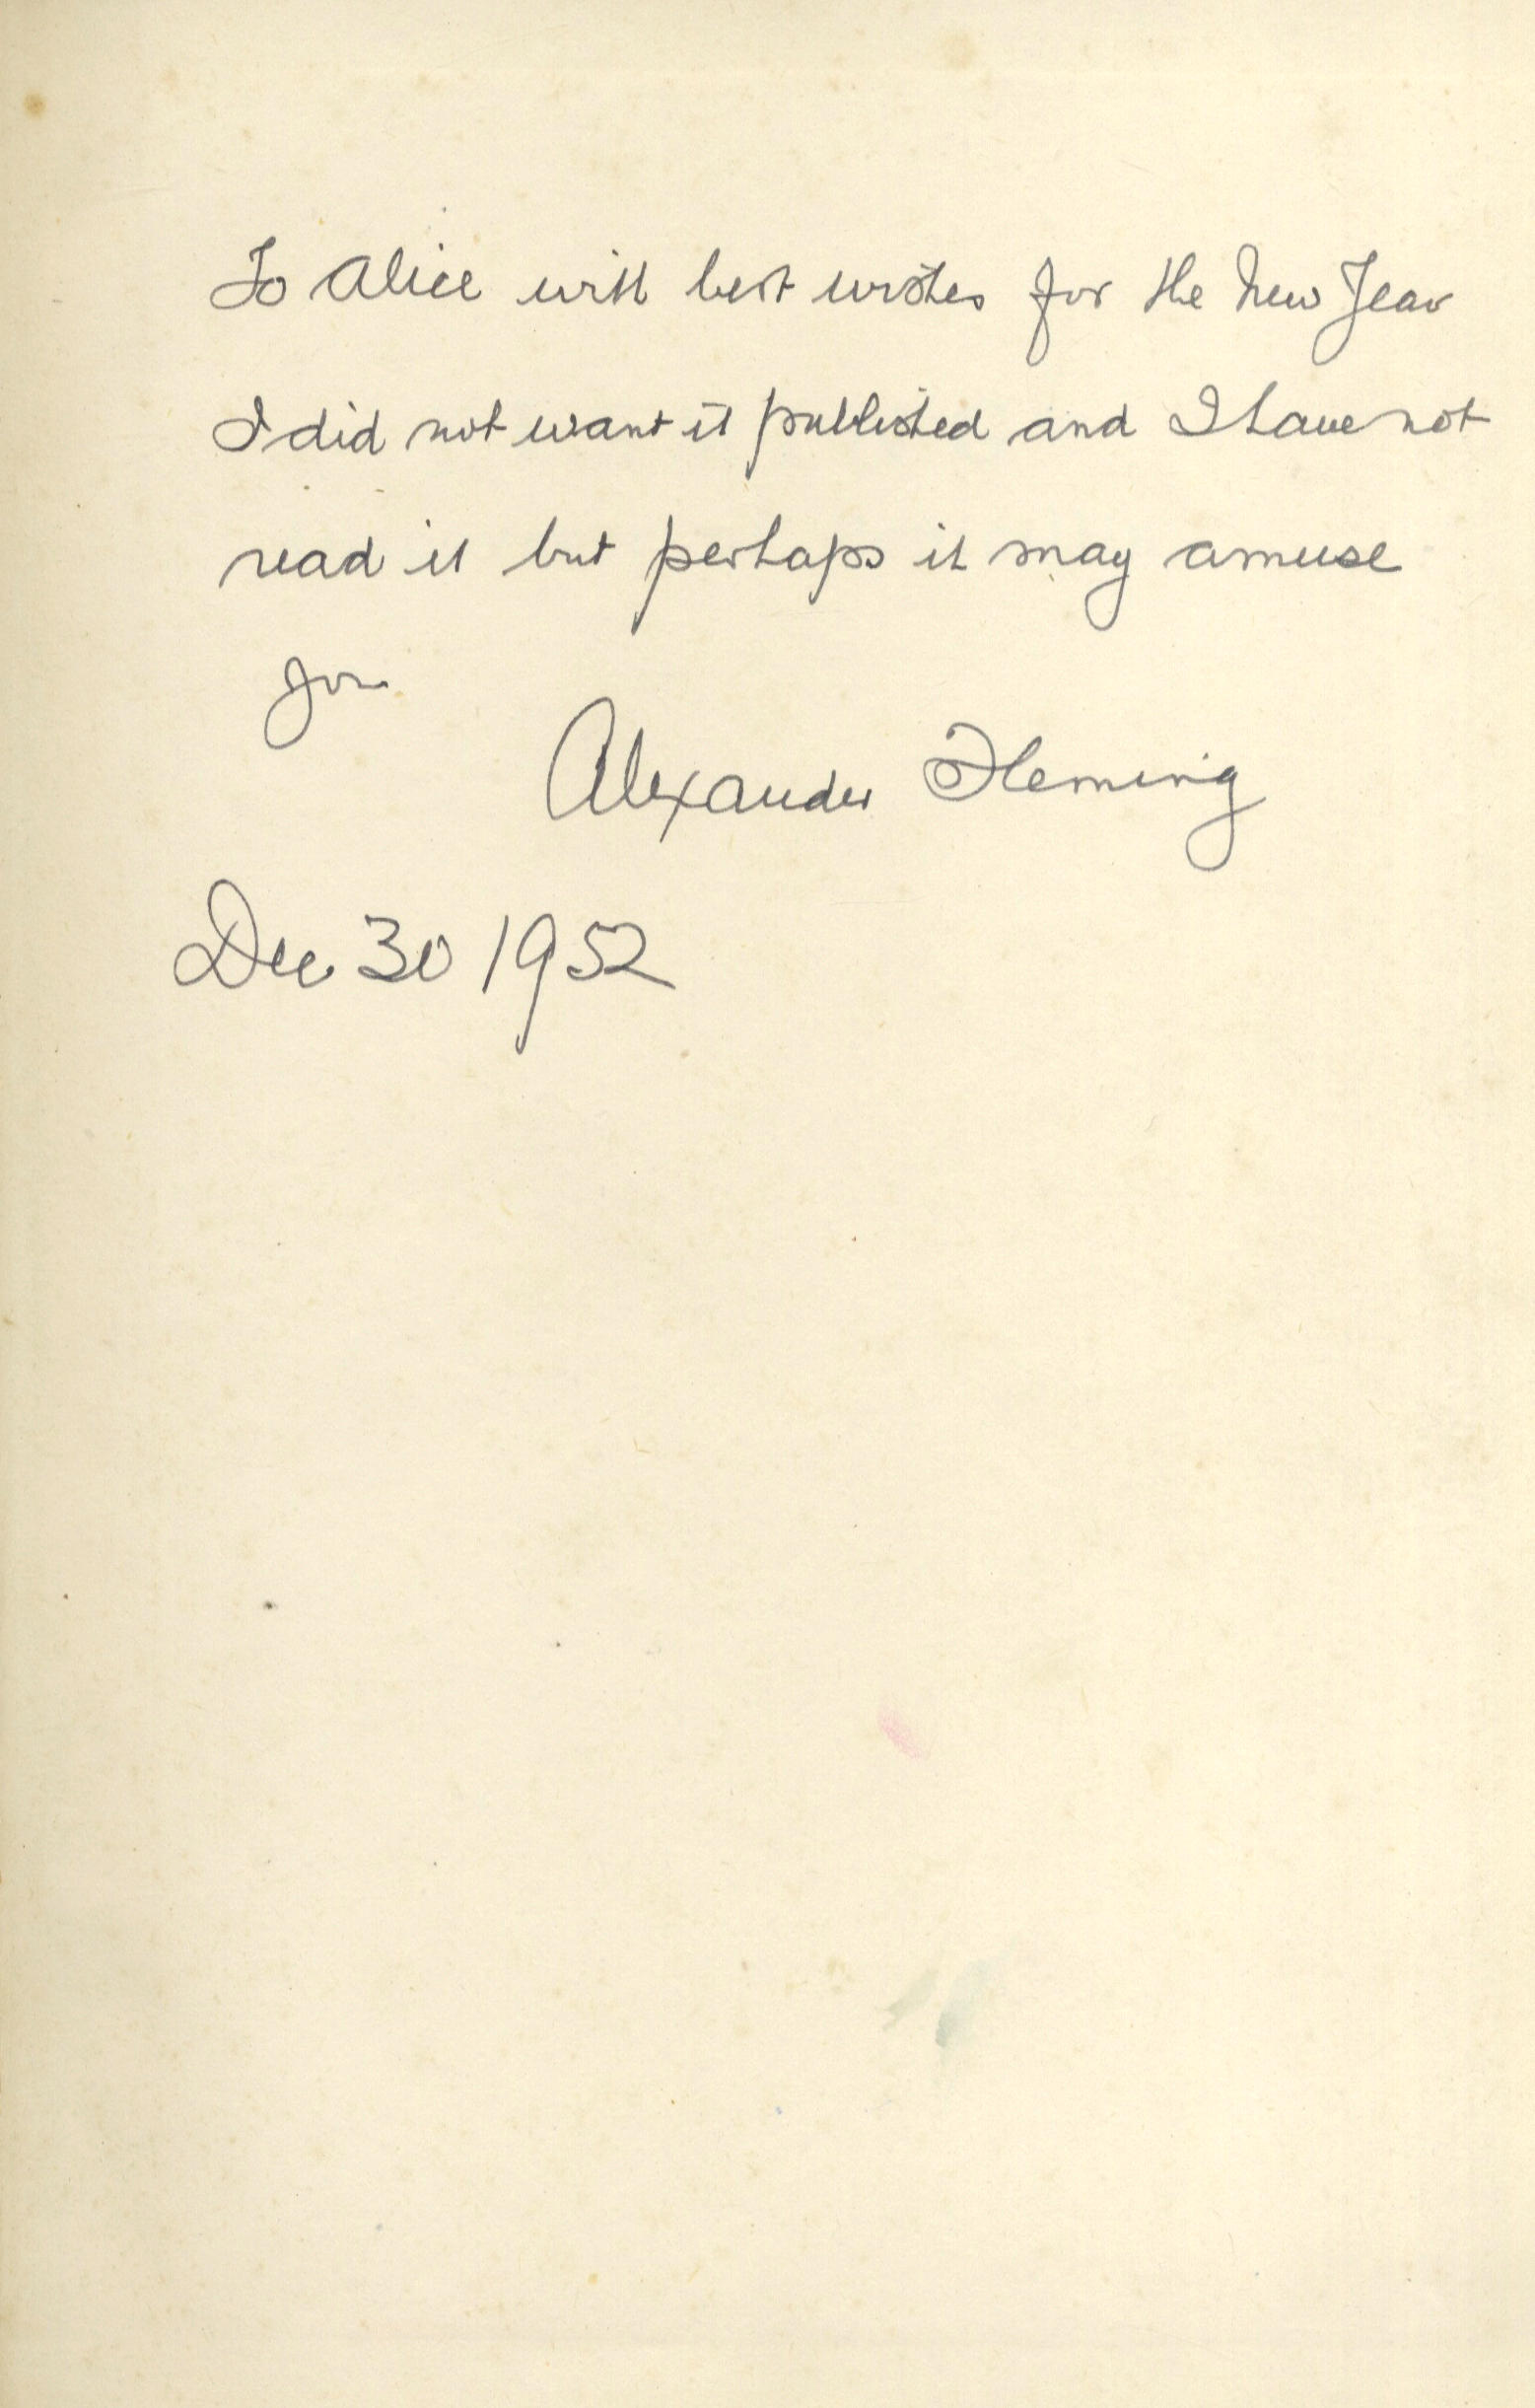 To Alice with best wishes for the New Year
I did not want it published and I have not
read it but perhaps it may amuse
you
Alexander Fleming
Dec 30 1952